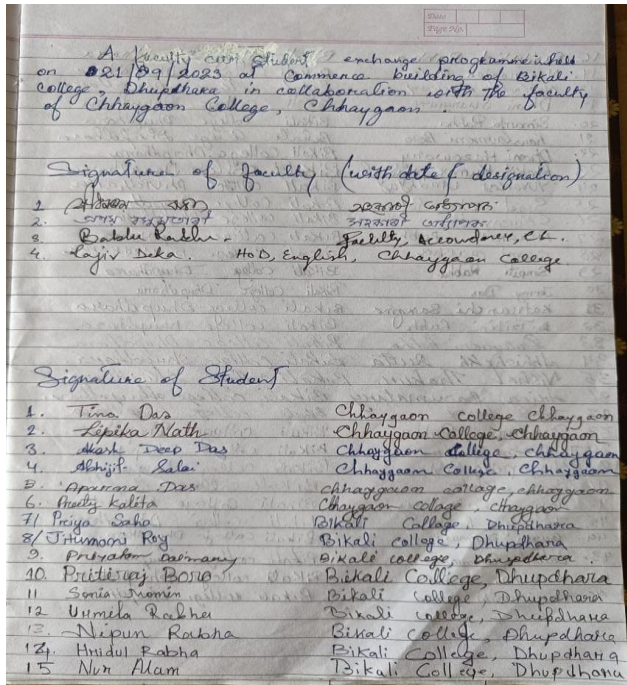 Date
Page No.
A Faculty cum Student exchange programme is held
on 21/09/2023 at Commerce building of Bikali
College, Dhupdhara in collaboration with the faculty
of Chhaygaon College, Chhaygaon.
Signature of faculty (with date & designation)
1
2.
3 Bablu Rabha. Faculty, Accountancy,
4. Rajiv Deka. HoD, English, Chhaygaon College
Signature of Student
1. Tina Das Chhaygaon college Chhaygaon
2. Lipika Nath Chhaygaon College, Chhaygaon
3. Akash Deep Das Chhaygaon College, Chhaygaon
4. Abhijit Salai Chhaygaon College, Chhaygaon
5. Aparna Das chhaygaon collage, chhaygaon
6. Preety Kalita Chaygaon collage, Chaygaon
7/ Priya Saha Bikali Collage, Dhupdhara
8/ Jhumoni Roy Bikali college, Dhupdhara
9. Priyakan Daimary Bikali college, Dhupdhara.
10. Pritiraj Boro Bikali College, Dhupdhara
11 Sonia Momin Bikali College, Dhupdhara
12 Urmela Rabha Bikali college, Dhupdhara
13 Nipun Rabha Bikali college, Dhupdhara
14. Hridul Rabha Bikali College, Dhupdhara
15 Nur Alam Bikali College, Dhupdhara